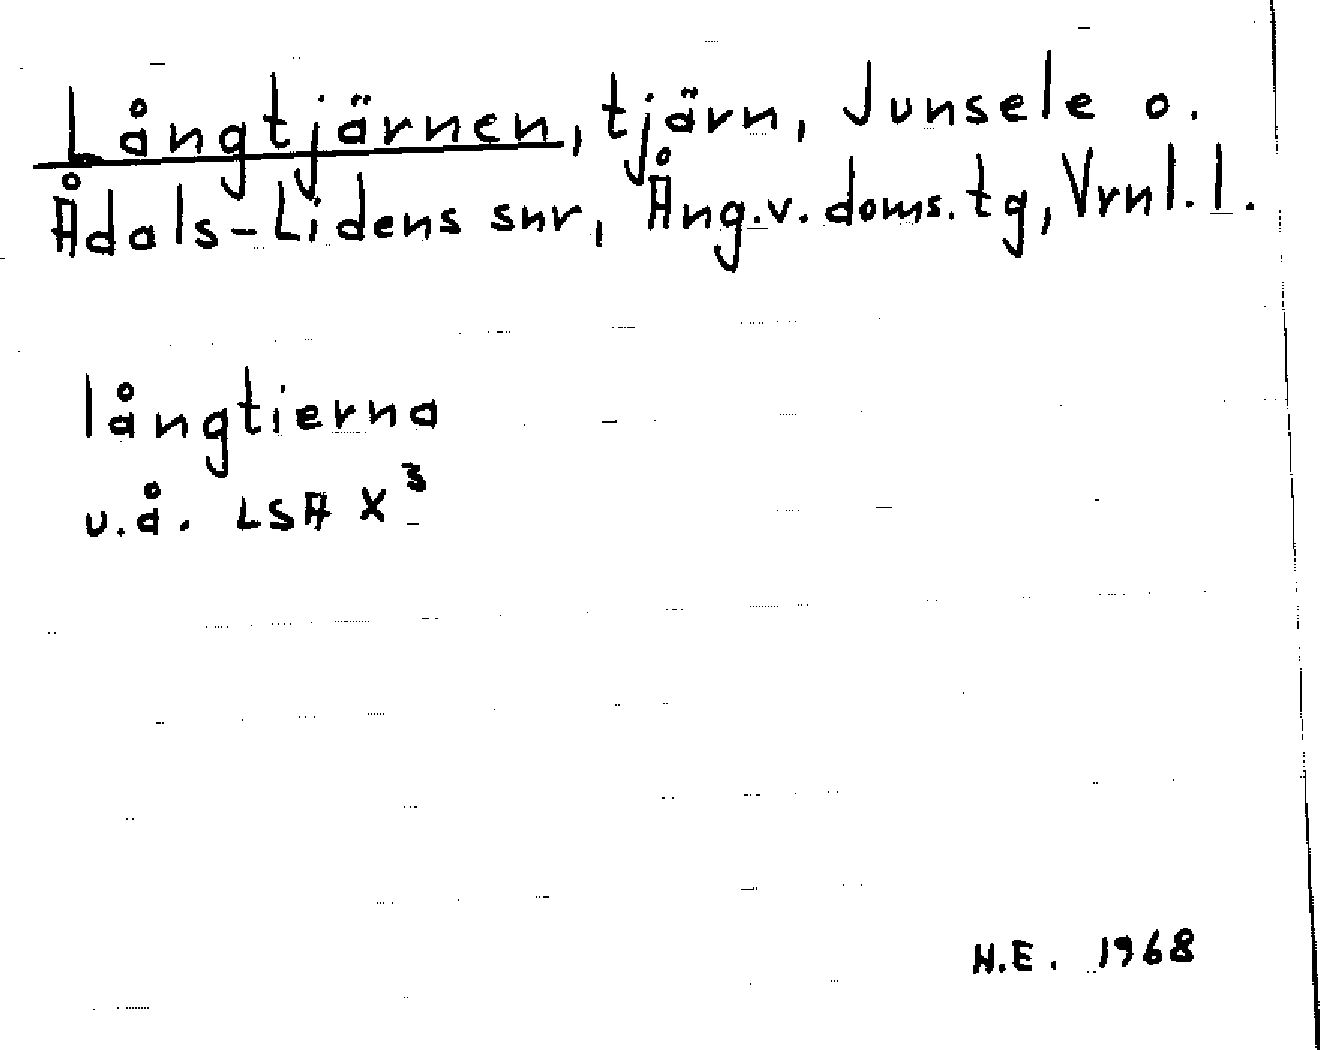 Långtjärnen, tjärn, Junsele o.
Ådals-Lidens snr, Ång.v.doms.tg, Vrnl.l.
långtierna
u.å. LSA X³
H.E. 1968